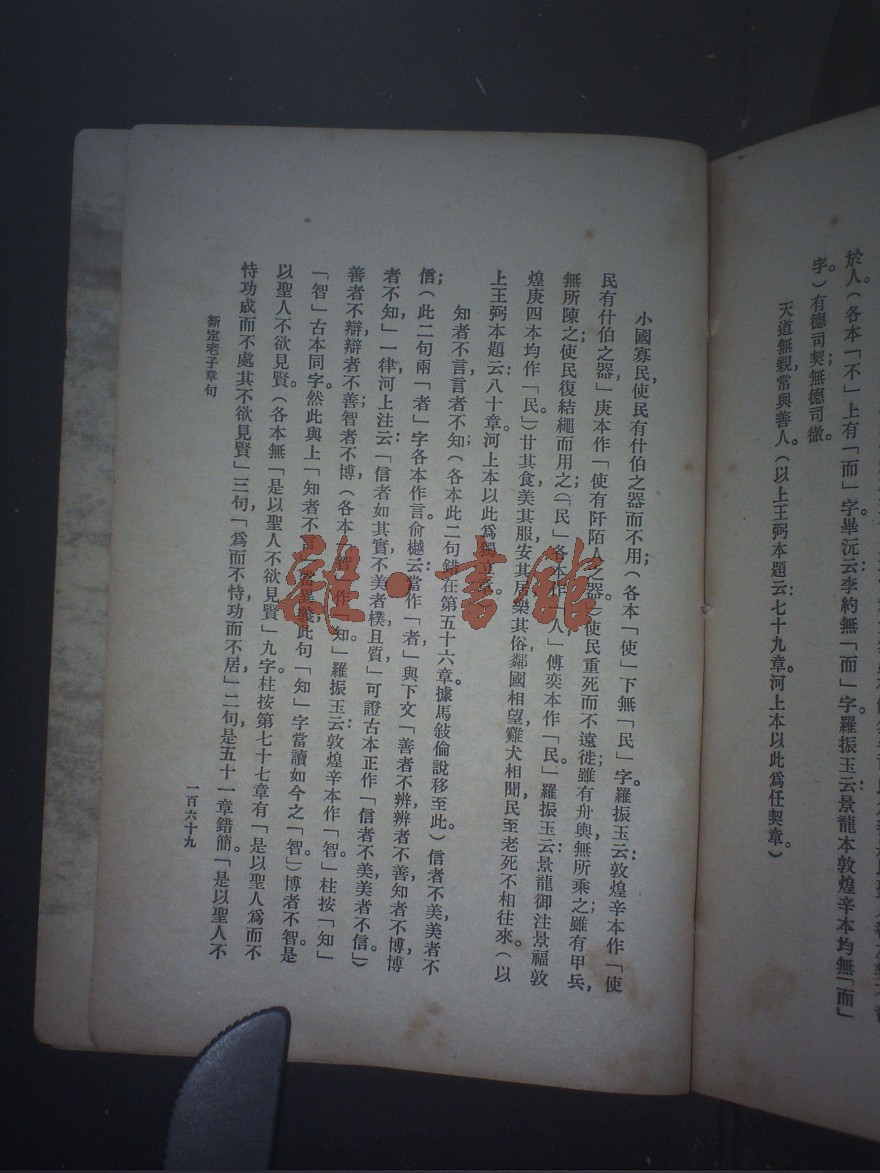 於人(各本「不」上有「而」字。畢沅云:李約無「而」字。羅振玉云:景龍本敦煌辛本均無「而」
字。)有德司契,無德司徹。
天道無親,常與善人。(以上王弼本題云七十九章。河上本以此爲任契章。)
小國寡民,使民有什伯之器而不用;(各本「使」下無「民」字。羅振玉云:敦煌辛本作「使
民有什伯之器」,庚本作「使有阡陌人之器。」)使民重死而不遠徙;雖有舟輿,無所乘之;雖有甲兵,
無所陳之;使民復結繩而用之(「民」各本作「人」,傅奕本作「民」,羅振玉云:景龍御注景福敦
煌庚四本均作「民。」)甘其食,美其服,安其居,樂其俗,鄰國相望,雞犬相聞,民至老死不相往來。(以
上王弼本題云:八十章。河上本以此爲獨立章。)
知者不言,言者不知;(各本此二句錯在第五十六章。據馬敍倫說移至此。)信者不美,美者不
信;(此二句兩「者」字各本作言。俞樾云:當作「者」與下文「善者不辨,辨者不善,知者不博,博
者不知,」一律。河上注云:「信者如其實,不美者樸且質」,可證古本正作「信者不美,美者不信。」)
善者不辯,辯者不善;智者不博,(各本「智」作「知」羅振玉云:敦煌辛本作「智。」柱按:「知」
「智」古本同字。然此與上「知者不言」當異義。此句「知」字當讀如今之「智」)博者不智。是
以聖人不欲見賢。(各本無「是以聖人不欲見賢」九字。柱按:第七十七章有「是以聖人爲而不
恃,功成而不處,其不欲見賢」三句,「爲而不恃,功而不居,」二句是五十一章錯簡。「是以聖人不
新定老子章句
一百六十九
雜·書館